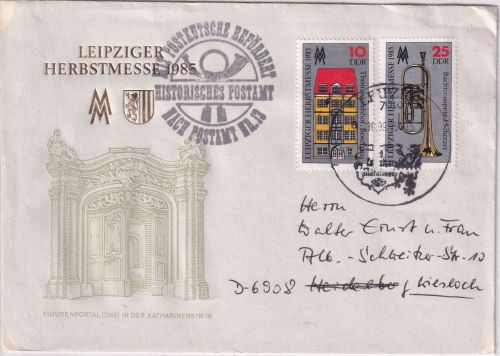 LEIPZIGER
HERBSTMESSE 1985
HISTORISCHES POSTAMT
NACH POSTAMT NR. 13
LEIPZIGER HERBSTMESSE 1985
10
DDR
LEIPZIGER HERBSTMESSE 1985
25
DDR
Herrn
Walter Ernst u. Frau
Alb.-Schweitzer-Str. 10
D-6908 Heidelberg Wiesloch
FIGURENPORTAL (1749) IN DER KATHARINENSTR. 19